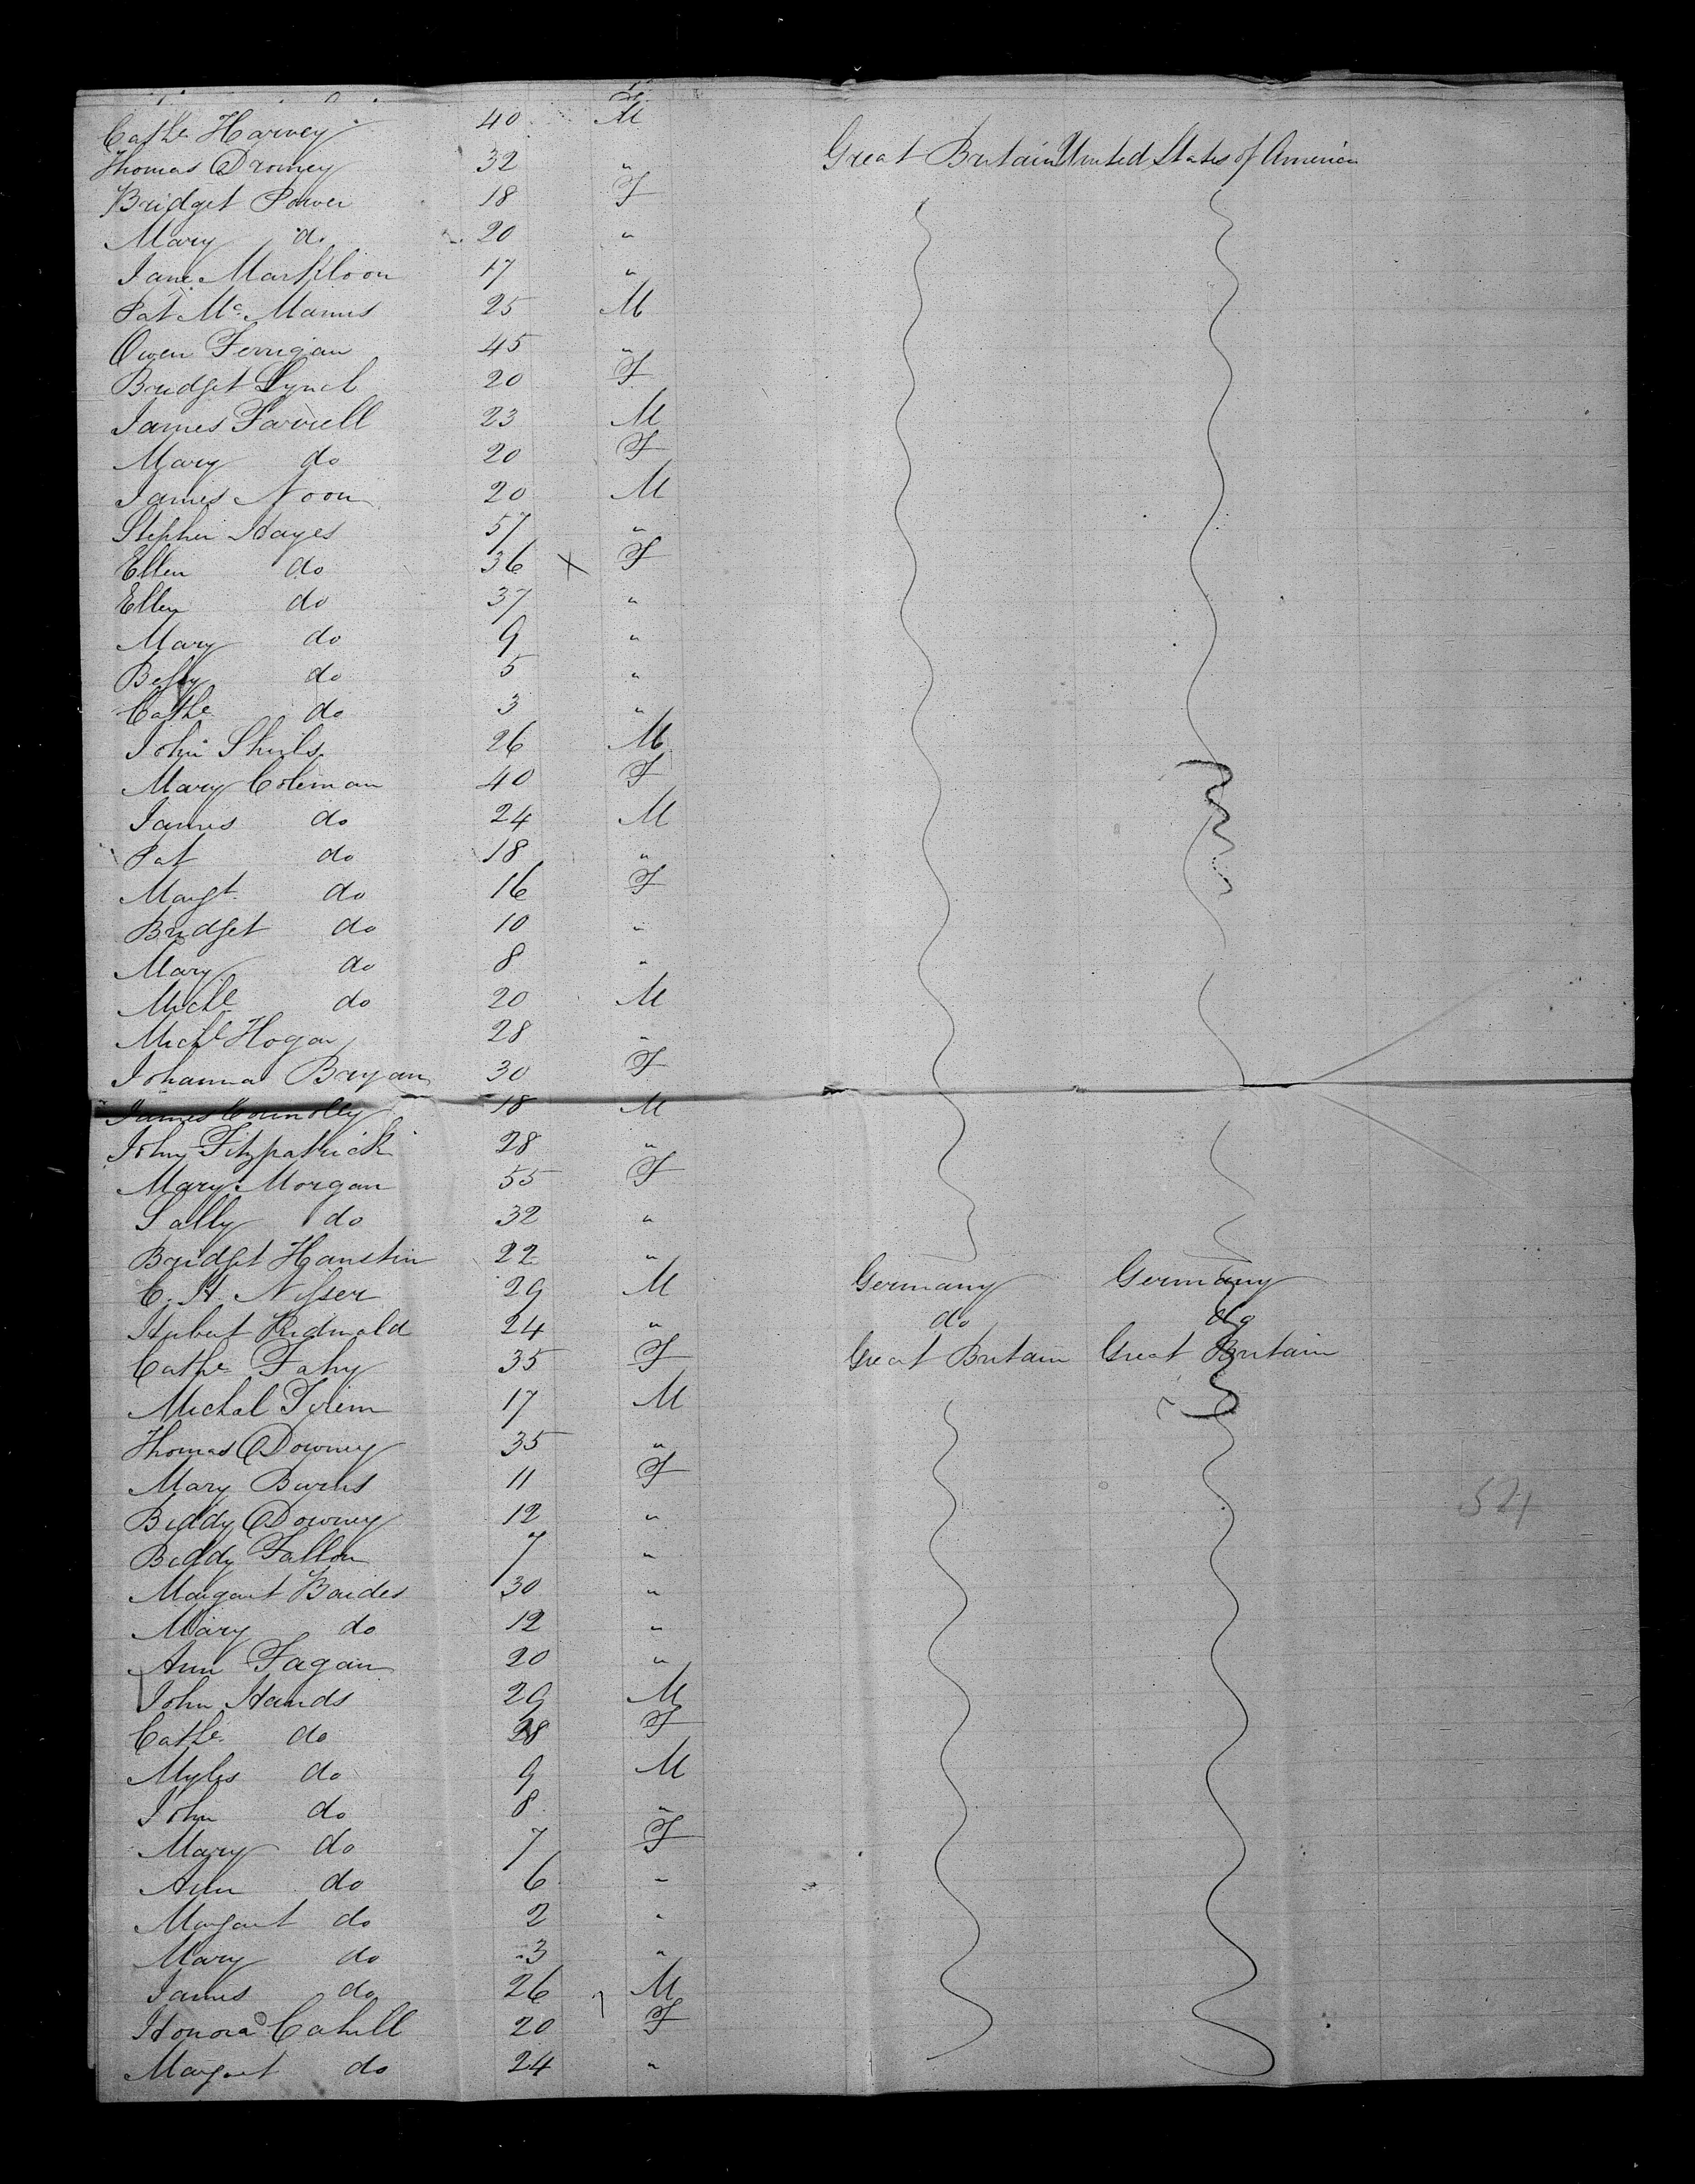 Cathe Harvey 40 M
Thomas Dromey 32 " Great Britain United States of America
Bridget Power 18 F
Mary do 20 "
Jane 17 "
Pat Mc Manus 25 M
Owen Ferrigan 45 "
Bridget Lynch 20 F
James Farrell 23 M
Mary do 20 F
James Noon 20 M
Stephen Hayes 57 "
Ellen do 36 x F
Ellen do 37 "
Mary do 9 "
Bessy do 5 "
Cathe do 3 "
John Shiels 26 M
Mary Coleman 40 F
James do 24 M
Pat do 18 "
Margt do 16 F
Bridget do 10 "
Mary do 8 "
Michl do 20 M
Michl Hogan 28 "
Johanna Bryan 30 F
James Connolly 18 M
John Fitzpatrick 28 "
Mary Morgan 55 F
Sally do 32 "
Bridget 22 "
C. H. Nisser 29 M Germany Germany
Hubert 24 " do do
Cathe Fahy 35 F Great Britain Great Britain
Michal 17 M
Thomas Downey 35 "
Mary Burns 11 F
Biddy Downey 12 "
Biddy Fallon 7 "
Margaret 30 "
Mary do 12 "
Ann Fagan 20 "
John Hands 29 M
Cathe do 28 F
Myles do 9 M
John do 8 "
Mary do 7 F
Ann do 6 "
Margaret do 2 "
Mary do 3 "
James do 26 M
Honora Cahill 20 F
Margaret do 24 "